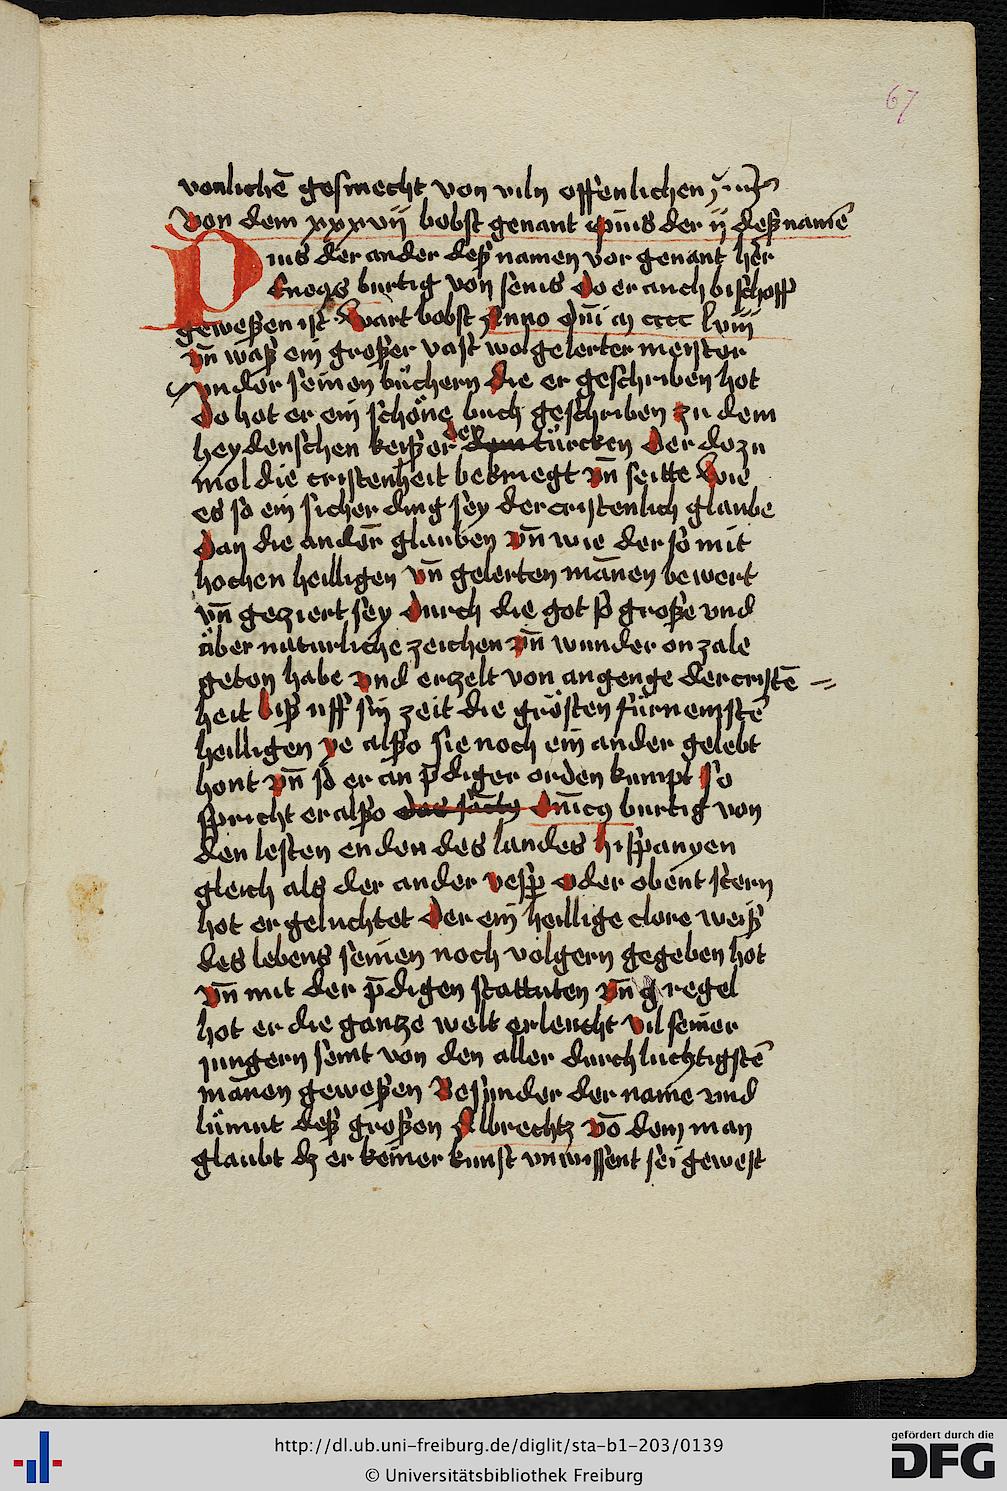 67
vonlichē gesmecht von viln offenlichen
Von dem xxxvij bobst genant pius der ij deß namē
Pius der ander deß namen vor genant her
Eneas burtig von senis do er auch bischoff
geweßen ist Wart bobst Anno dnī m cccc lviij
vn̄ waß ein großer vast wolgelerter meister
vnder seinen büchern die er geschriben hot
Do hot er ein schöne buch geschriben zu dem
heydenschen keißer der dem türcken Der do zu
mol die cristenheit bekriegt vn̄ seitte Wie
es so ein sicher ding sey der cristenlich glaube
Dan die ander glauben vn̄ wie der so mit
hochen heilligen vn̄ gelerten mānen bewert
vn̄ geziert sey durch die got so große vnd
über naturliche zeichen vn̄ wunder on zale
geton habe vnd erzelt von angenge der cristē =
heit biß uff sin zeit die grösten fürnemstē
heilligen ye alßo sie noch ein ander gelebt
hont vn̄ so er an p̄diger orden kumpt so
spricht er alßo das sāctꝯ Dnīcꝯ burtig von
den lesten enden des landes hispanyen
gleich als der ander vesp oder obent stern
hot er geluchtet Der ein heillige clore weiß
des lebens seinen noch volgern gegeben hot
vn̄ mit der p̄digen stattuten vn̄ regel
hot er die gantze welt erleucht vil seiner
jungern seint von den aller durchluchtigstē
mānen geweßen Besunder der name vnd
lümut deß großen Albrechtz vō dem man
glaubt dz er keiner kunst vnwissent sei gewest
http://dl.ub.uni-freiburg.de/diglit/sta-b1-203/0139
© Universitätsbibliothek Freiburg
gefördert durch die
DFG